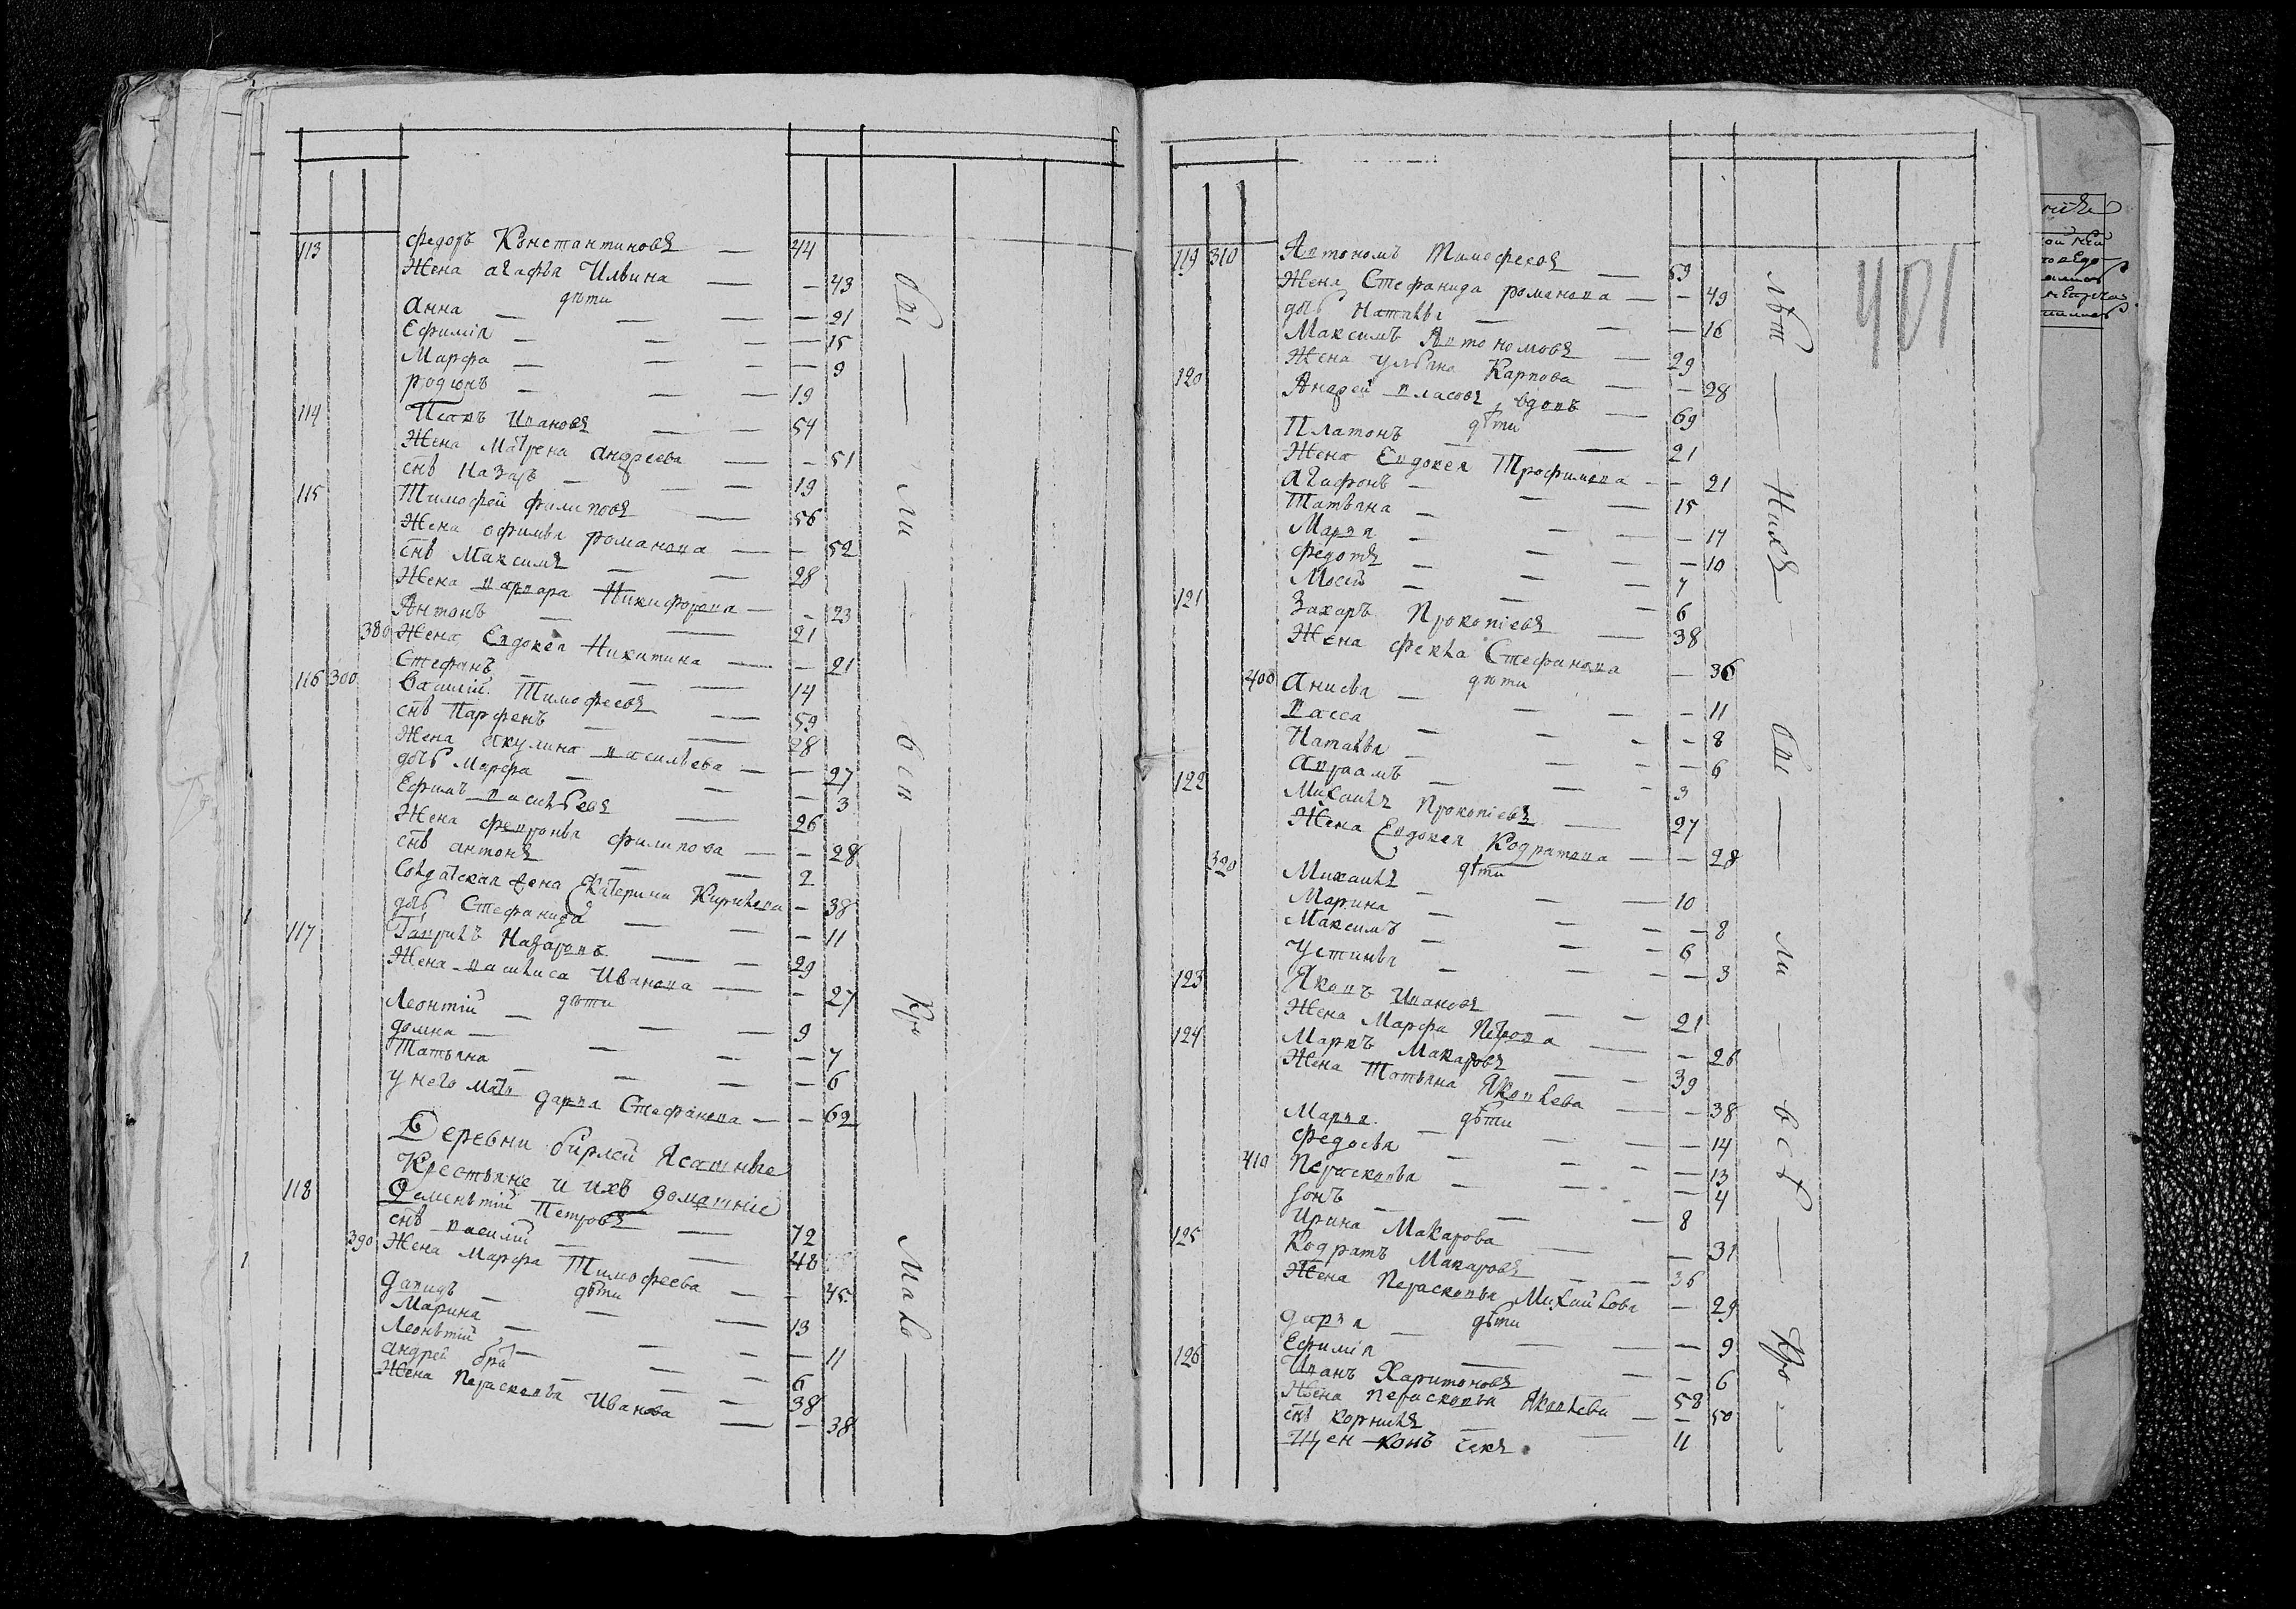 113 федоръ Константиновъ — 44
Жена агафья Ильина — — 43
дѣти
анна — — — 21
Ефимія — — — 15
Марфа — — — 9
родионъ — — 19
114 Петръ Ивановъ — 54
Жена Матрена андреева — — 51
снъ Назаръ — — 19
115 Тимофей филиповъ — 56
Жена офимья романова — — 52
снъ Максимъ — — 28
Жена варвара Никифорова — — 23
Антонъ — — 21
380 Жена Евдокея Никитина — — 21
Стефанъ — — 14
116 300 Василій Тимофеевъ — 59
снъ Парфенъ — — 28
Жена акулина васильева — — 27
дчь Марфа — — — 3
Ефимъ васильевъ — 26
Жена февронья филипова — — 28
снъ антонъ — — 2
Солдатская жена Катерина Кирилова — 38
дчь Стефанида — — — 11
117 Гаврилъ Назаровъ — 29
Жена василиса Иванова — — 27
дѣти
Леонтій — — 9
домна — — — 7
Татьяна — — — 6
у него мать дарья Стефанова — — 62
Деревни бирлей Ясашные
Крестьяне и ихъ домашніе
118 Дементій Петровъ — 72
снъ василій — — 48
390 Жена Марфа Тимофеева — — 45
дѣти
давидъ — — 13
Марина — — — 11
Леонтій — — 6
андрей бра — — 38
Жена Перасковья Иванова — — 38
бы — ли — вси — Кро — Мало —
1
1
401
119 310 Автономъ Тимофеевъ — 59
Жена Стефанида романова — — 49
дчь Наталья — — — 16
Максимъ Автономовъ — 29
Жена ульяна Карпова — — 28
120 Андрей власовъ вдовъ — 69
дѣти
Платонъ — — 21
Жена Евдокея Трофимова — — 21
агафонъ — — 15
Татьяна — — — 17
Марья — — — 10
федотъ — — 7
Мосей — — 6
121 Захаръ Прокопіевъ — 38
Жена фекла Стефанова — 36
дѣти
400 анисья — — — 11
васса — — — 8
Наталья — — — 6
авраамъ — — 3
122 Михаилъ Прокопіевъ — 27
Жена Евдокея Кодратова — — 28
дѣти
320 Михаилъ — — 10
Марина — — — 8
Максимъ — — 6
Устинья — — — 3
123 Яковъ Ивановъ — 21
Жена Марфа Петрова — — 26
124 Маркъ Макаровъ — 39
Жена Татьяна Яковлева — — 38
дѣти
Марья — — — 14
федосья — — — 13
410 Перасковья — — — 4
Іонъ — — 8
Ирина Макарова — — 31
125 Кодратъ Макаровъ — 36
Жена Перасковья Михайлова — 29
дѣти
дарья — — — 9
Ефимія — — — 6
126 Иванъ Харитоновъ — 58
Жена Перасковья Яковлева — — 50
снъ Корнилъ — 11
лѣт — Нихъ — бы — ли — всѣ — Кро —